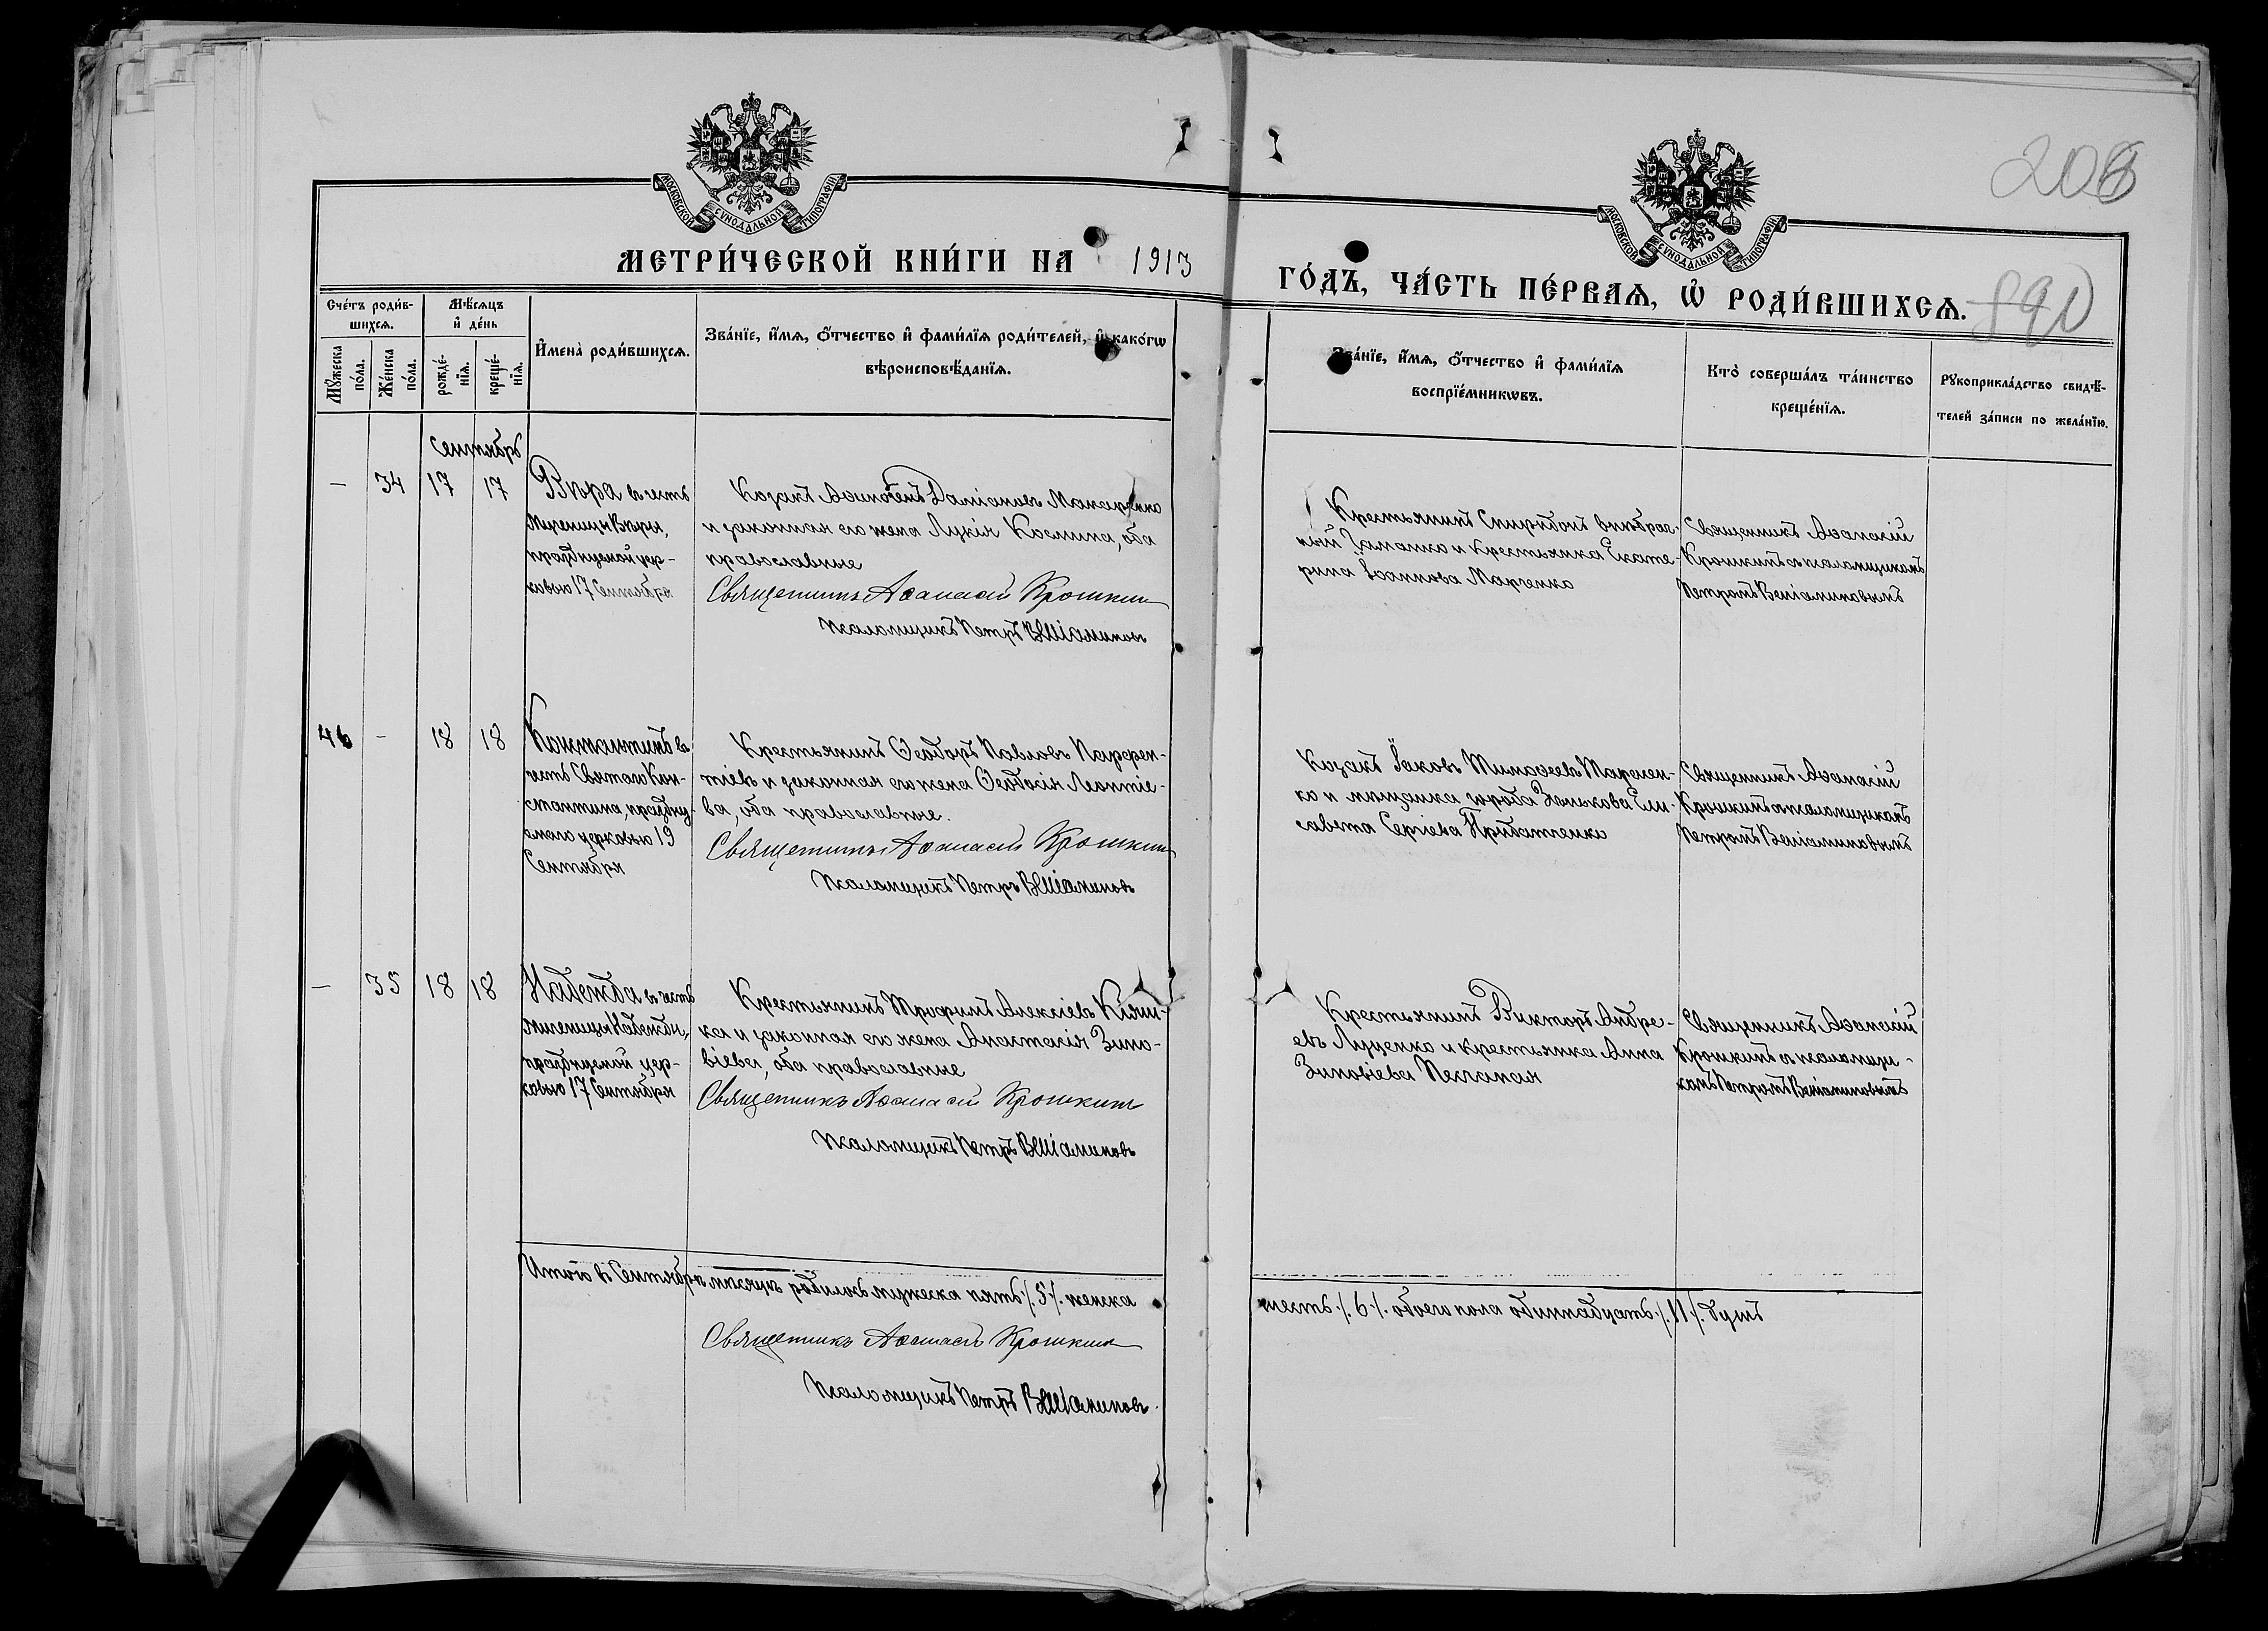 МОСКОВСКОЙ СѴНОДАЛЬНОЙ ТИПОГРАФІИ
МОСКОВСКОЙ СѴНОДАЛЬНОЙ ТИПОГРАФІИ
208
МЕТРИ́ЧЕСКОЙ КНИ́ГИ НА 1913
ГО́ДЪ, ЧА́СТЬ ПЕ́РВАѦ, Ѡ҆ РОДИ́ВШИХСѦ.
890
Сче́тъ роди́в-
шихсѧ.
Мѣ́сѧцъ
и҆ де́нь
И҆мена̀ роди́вшихсѧ.
Зва́нїе, и҆́мѧ, ѻ҆́тчество и҆ фами́лїѧ роди́телей, и҆ како́гѡ
вѣроисповѣ́данїѧ.
Мꙋ́жеска
по́ла.
Же́нска
по́ла.
рожде́-
нїѧ.
креще́-
нїѧ.
Зва́нїе, и҆́мѧ, ѻ҆́тчество и҆ фами́лїѧ
воспрїе́мникѡвъ.
Кто̀ соверша́лъ та́инство
креще́нїѧ.
Рꙋкоприкла́дство свидѣ́-
телей за́писи по жела́нїю.
Сентябрь
— 34 17 17
Вѣра въ честь
Мученицы Вѣры,
празднуемой цер-
ковью 17 Сентября
Козакъ Даміановъ Макаренко
и законная его жена Лукія Космина, оба
православные
Священникъ Аѳанасій Крошкинъ
Псаломщикъ Петръ Веніаминовъ
Крестьянинъ Спиридонъ
и крестьянка Екате-
рина Іоаннова Марченко
Священникъ Аѳанасій
Крошкинъ съ псаломщикомъ
Петромъ Веніаминовымъ
46 — 18 18
Константинъ въ
честь Святого Кон-
стантина, праздну-
емаго церковью 19
Сентября
Крестьянинъ Ѳеодоръ Павловъ Парфен-
тіевъ и законная его жена Ѳеодосія Леонтіе-
ва, оба православные.
Священникъ Аѳанасій Крошкинъ
Псаломщикъ Петръ Веніаминовъ
Козакъ Іаковъ Тимоѳеевъ
ко и мѣщанка города Зѣнькова Ели-
савета Сергіева
Священникъ Аѳанасій
Крошкинъ съ псаломщикомъ
Петромъ Веніаминовымъ
— 35 18 18
Надежда въ честь
Мученицы Надежды,
празднуемой цер-
ковью 17 Сентября
Крестьянинъ Трофимъ Алексіевъ
ка и законная его жена Анастасія Зино-
віева, оба православные
Священникъ Аѳанасій Крошкинъ
Псаломщикъ Петръ Веніаминовъ
Крестьянинъ Викторъ Андре-
евъ Луценко и крестьянка Анна
Зиновіева
Священникъ Аѳанасій
Крошкинъ съ псаломщи-
комъ Петромъ Веніаминовымъ
Итого въ Сентябрѣ мѣсяцѣ родилось мужеска пять /.5/. женска
шесть /.6./. обоего пола одиннадцать /.11/. душъ
Священникъ Аѳанасій Крошкинъ
Псаломщикъ Петръ Веніаминовъ.